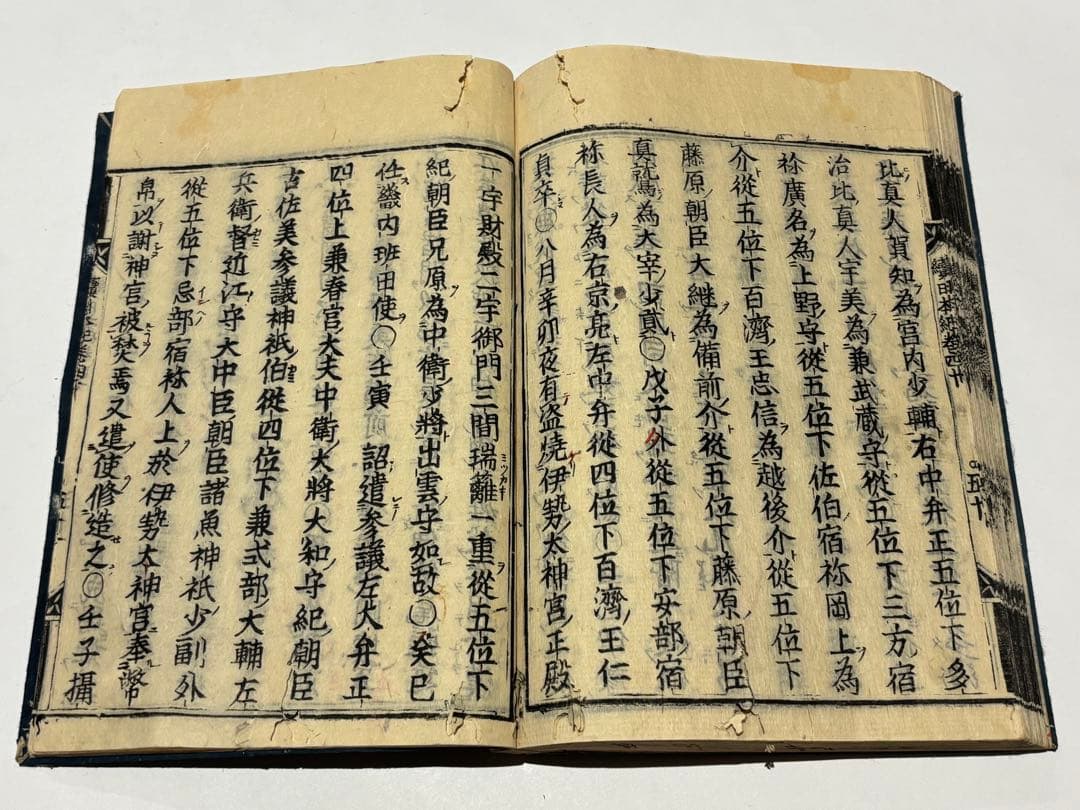 比真人賀知為宮内少輔右中弁正五位下多
治比真人宇美為兼武蔵守從五位下三方宿
祢廣名為上野守從五位下佐伯宿祢岡上為
介從五位下百濟王忠信為越後介從五位下
藤原朝臣大継為備前介從五位下藤原朝臣
真鷲為大宰少貳○戊子外從五位下安部宿
祢長人為右京亮左中弁從四位下百濟王仁
貞卒○八月辛卯夜有盗燒伊勢太神宮正殿
一宇財殿二宇御門三間瑞籬一重從五位下
ミツカキ
紀朝臣兄原為中衛少將出雲守如故○癸巳
任畿内班田使○壬寅詔遣参議左大弁正
四位上兼春宮大夫中衛大將大和守紀朝臣
古佐美参議神祇伯從四位下兼式部大輔左
兵衛督近江守大中臣朝臣諸魚神祇少副外
從五位下忌部宿祢人上於伊勢太神宮奉幣
帛以謝神宮被焚焉又遣使修造之○壬子攝